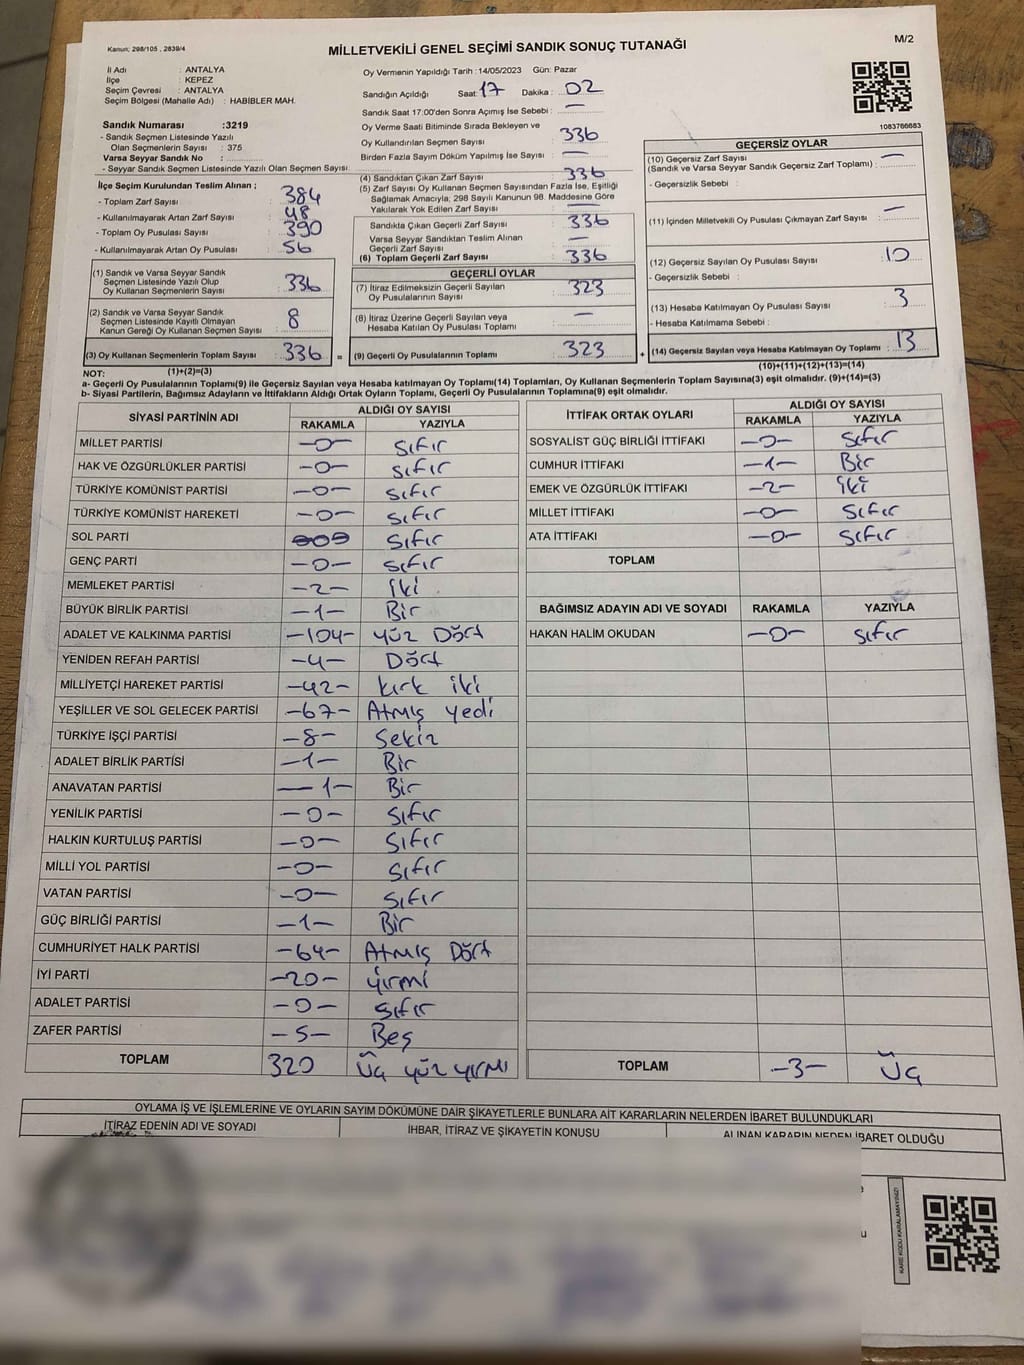 Kanun; 298/105 , 2839/4
MİLLETVEKİLİ GENEL SEÇİMİ SANDIK SONUÇ TUTANAĞI
M/2
İl Adı : ANTALYA
İlçe : KEPEZ
Seçim Çevresi : ANTALYA
Seçim Bölgesi (Mahalle Adı) : HABİBLER MAH.
Sandık Numarası :3219
- Sandık Seçmen Listesinde Yazılı
Olan Seçmenlerin Sayısı : 375
Varsa Seyyar Sandık No :
- Seyyar Sandık Seçmen Listesinde Yazılı Olan Seçmen Sayısı:
İlçe Seçim Kurulundan Teslim Alınan ;
- Toplam Zarf Sayısı : 384
- Kullanılmayarak Artan Zarf Sayısı : 48
- Toplam Oy Pusulası Sayısı : 390
- Kullanılmayarak Artan Oy Pusulası : 56
(1) Sandık ve Varsa Seyyar Sandık
Seçmen Listesinde Yazılı Olup
Oy Kullanan Seçmenlerin Sayısı : 336
(2) Sandık ve Varsa Seyyar Sandık
Seçmen Listesinde Kayıtlı Olmayan
Kanun Gereği Oy Kullanan Seçmen Sayısı : 8
(3) Oy Kullanan Seçmenlerin Toplam Sayısı : 336 =
(1)+(2)=(3)
Oy Vermenin Yapıldığı Tarih :14/05/2023 Gün: Pazar
Sandığın Açıldığı Saat: 17 Dakika : 02
Sandık Saat 17:00'den Sonra Açımış İse Sebebi : —
Oy Verme Saati Bitiminde Sırada Bekleyen ve
Oy Kullandırılan Seçmen Sayısı : 336
Birden Fazla Sayım Döküm Yapılmış İse Sayısı : —
(4) Sandıktan Çıkan Zarf Sayısı : 336
(5) Zarf Sayısı Oy Kullanan Seçmen Sayısından Fazla İse, Eşitliği
Sağlamak Amacıyla; 298 Sayılı Kanunun 98. Maddesine Göre
Yakılarak Yok Edilen Zarf Sayısı : —
Sandıkta Çıkan Geçerli Zarf Sayısı : 336
Varsa Seyyar Sandıktan Teslim Alınan
Geçerli Zarf Sayısı : —
(6) Toplam Geçerli Zarf Sayısı : 336
GEÇERLİ OYLAR
(7) İtiraz Edilmeksizin Geçerli Sayılan
Oy Pusulalarının Sayısı : 323
(8) İtiraz Üzerine Geçerli Sayılan veya
Hesaba Katılan Oy Pusulası Toplamı : —
(9) Geçerli Oy Pusulalarının Toplamı : 323 +
1083766683
GEÇERSİZ OYLAR
(10) Geçersiz Zarf Sayısı
(Sandık ve Varsa Seyyar Sandık Geçersiz Zarf Toplamı) : —
- Geçersizlik Sebebi :
(11) İçinden Milletvekili Oy Pusulası Çıkmayan Zarf Sayısı : —
(12) Geçersiz Sayılan Oy Pusulası Sayısı : 10
- Geçersizlik Sebebi :
(13) Hesaba Katılmayan Oy Pusulası Sayısı : 3
- Hesaba Katılmama Sebebi :
(14) Geçersiz Sayılan veya Hesaba Katılmayan Oy Toplamı : 13
(10)+(11)+(12)+(13)=(14)
NOT:
a- Geçerli Oy Pusulalarının Toplamı(9) ile Geçersiz Sayılan veya Hesaba katılmayan Oy Toplamı(14) Toplamları, Oy Kullanan Seçmenlerin Toplam Sayısına(3) eşit olmalıdır. (9)+(14)=(3)
b- Siyasi Partilerin, Bağımsız Adayların ve İttifakların Aldığı Ortak Oyların Toplamı, Geçerli Oy Pusulalarının Toplamına(9) eşit olmalıdır.
SİYASİ PARTİNİN ADI ALDIĞI OY SAYISI
RAKAMLA YAZIYLA
MİLLET PARTİSİ —0— Sıfır
HAK VE ÖZGÜRLÜKLER PARTİSİ —0— Sıfır
TÜRKİYE KOMÜNİST PARTİSİ —0— Sıfır
TÜRKİYE KOMÜNİST HAREKETİ —0— Sıfır
SOL PARTİ Sıfır
GENÇ PARTİ —0— Sıfır
MEMLEKET PARTİSİ —2— İki
BÜYÜK BİRLİK PARTİSİ —1— Bir
ADALET VE KALKINMA PARTİSİ —104— Yüz Dört
YENİDEN REFAH PARTİSİ —4— Dört
MİLLİYETÇİ HAREKET PARTİSİ —42— Kırk iki
YEŞİLLER VE SOL GELECEK PARTİSİ —67— Atmış yedi
TÜRKİYE İŞÇİ PARTİSİ —8— Sekiz
ADALET BİRLİK PARTİSİ —1— Bir
ANAVATAN PARTİSİ —1— Bir
YENİLİK PARTİSİ —0— Sıfır
HALKIN KURTULUŞ PARTİSİ —0— Sıfır
MİLLİ YOL PARTİSİ —0— Sıfır
VATAN PARTİSİ —0— Sıfır
GÜÇ BİRLİĞİ PARTİSİ —1— Bir
CUMHURİYET HALK PARTİSİ —64— Atmış Dört
İYİ PARTİ —20— Yirmi
ADALET PARTİSİ —0— Sıfır
ZAFER PARTİSİ —5— Beş
TOPLAM 320 Üç yüz yırmı
İTTİFAK ORTAK OYLARI ALDIĞI OY SAYISI
RAKAMLA YAZIYLA
SOSYALİST GÜÇ BİRLİĞİ İTTİFAKI —0— Sıfır
CUMHUR İTTİFAKI —1— Bir
EMEK VE ÖZGÜRLÜK İTTİFAKI —2— İki
MİLLET İTTİFAKI —0— Sıfır
ATA İTTİFAKI —0— Sıfır
TOPLAM
BAĞIMSIZ ADAYIN ADI VE SOYADI RAKAMLA YAZIYLA
HAKAN HALİM OKUDAN —0— Sıfır
TOPLAM —3— Üç
OYLAMA İŞ VE İŞLEMLERİNE VE OYLARIN SAYIM DÖKÜMÜNE DAİR ŞİKAYETLERLE BUNLARA AİT KARARLARIN NELERDEN İBARET BULUNDUKLARI
İTİRAZ EDENİN ADI VE SOYADI İHBAR, İTİRAZ VE ŞİKAYETİN KONUSU ALINAN KARARIN NEDEN İBARET OLDUĞU
KARE KODU KARALAMAYINIZ!